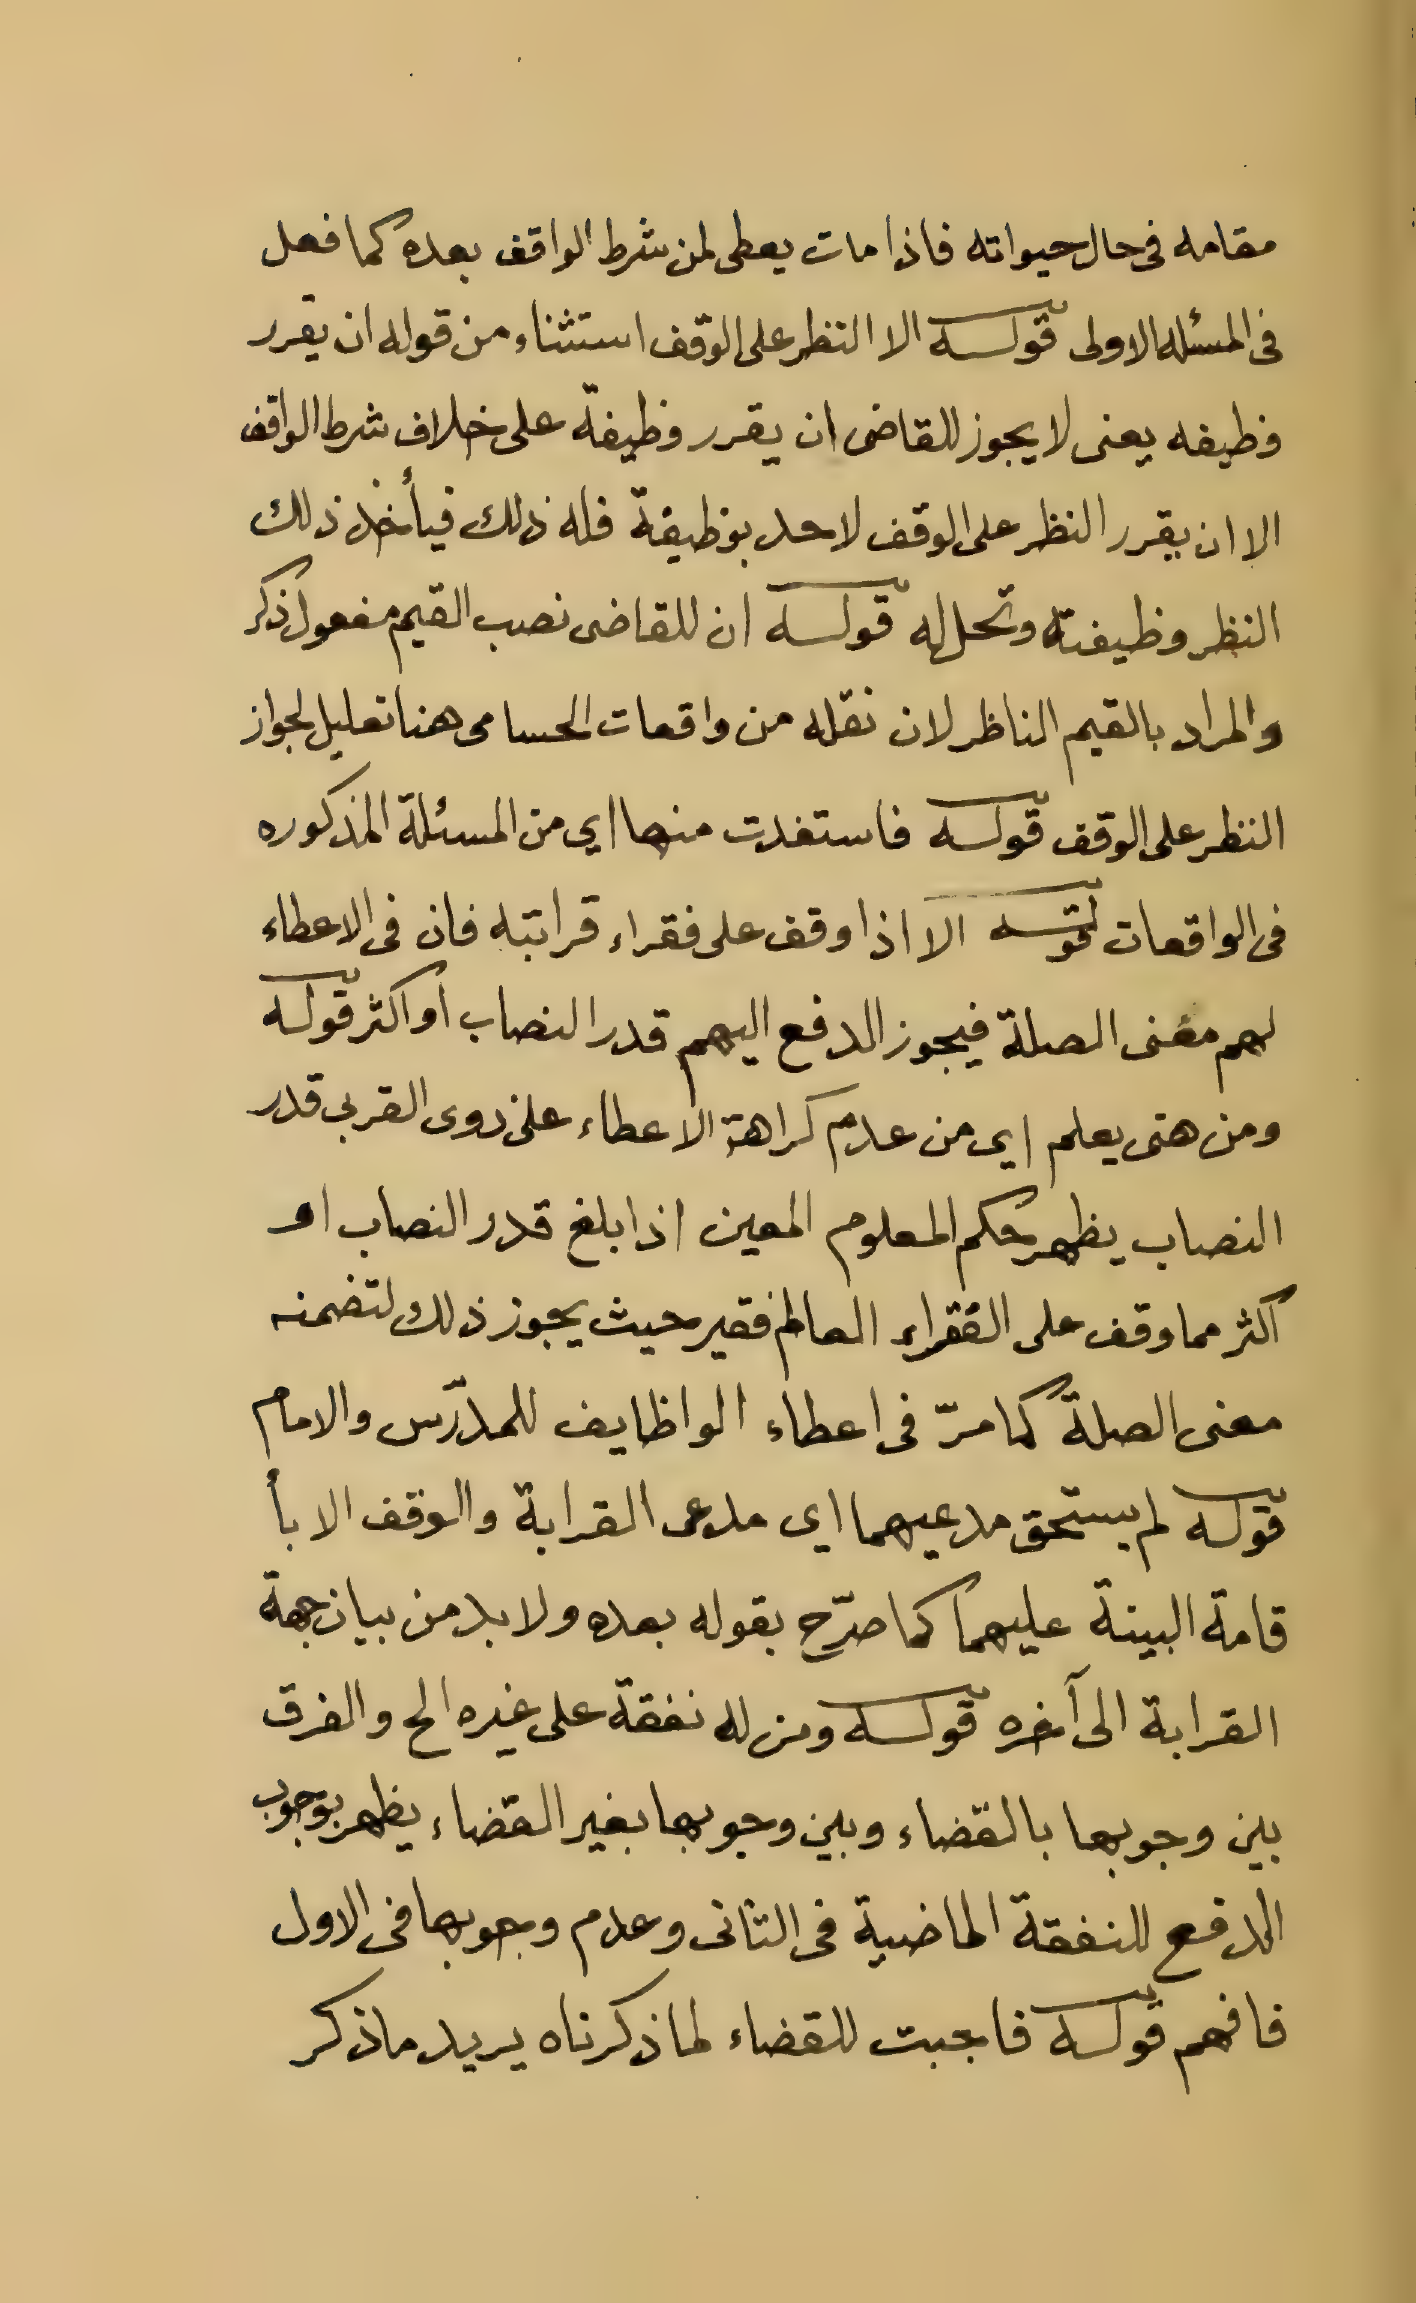 مقامه فى حال حيواته فاذا مات يعطى لمن شرط الواقف بعده كما فعل
فى المسئله الاولى قوله الا النظر على الوقف استثناء من قوله ان يقرر
وظيفه يعنى لا يجوز للقاضى ان يقرر وظيفة على خلاف شرط الواقف
الا ان يقرر النظر على الوقف لاحد بوظيفة فله ذلك فيأخذ ذلك
النظر وظيفته وتحل له قوله ان للقاضى نصب القيم مفعول ذكر
والمراد بالقيم الناظر لان نقله من واقعات الحسامى هنا تعليل لجواز
النظر على الوقف قوله فاستفدت منها اى من المسئلة المذكوره
فى الواقعات قوله الا اذا وقف على فقراء قرابته فان فى الاعطاء
لهم معنى الصلة فيجوز الدفع اليهم قدر النصاب أو اكثر قوله
ومن هنى يعلم اى من عدم كراهة الاعطاء على ذوى القربى قدر
النصاب يظهر حكم المعلوم المعين اذا بلغ قدر النصاب او
اكثر مما وقف على الفقراء العالم فقير حيث يجوز ذلك لتضمنه
معنى الصلة كما مرّ فى اعطاء الواظايف للمدرّس والامام
قوله لم يستحق مدعيهما اى مدعى القرابة والوقف الا بأ
قامة البينة عليهما كما صرّح بقوله بعده ولا بد من بيان جهة
القرابة الى آخره قوله ومن له نفقة على غيره الخ والفرق
بين وجوبها بالقضاء وبين وجوبها بغير القضاء يظهر بوجوب
الدفع للنفقة الماضية فى الثانى وعدم وجوبها فى الاول
فافهم قوله فاجبت للقضاء لما ذكرناه يريد ما ذكر